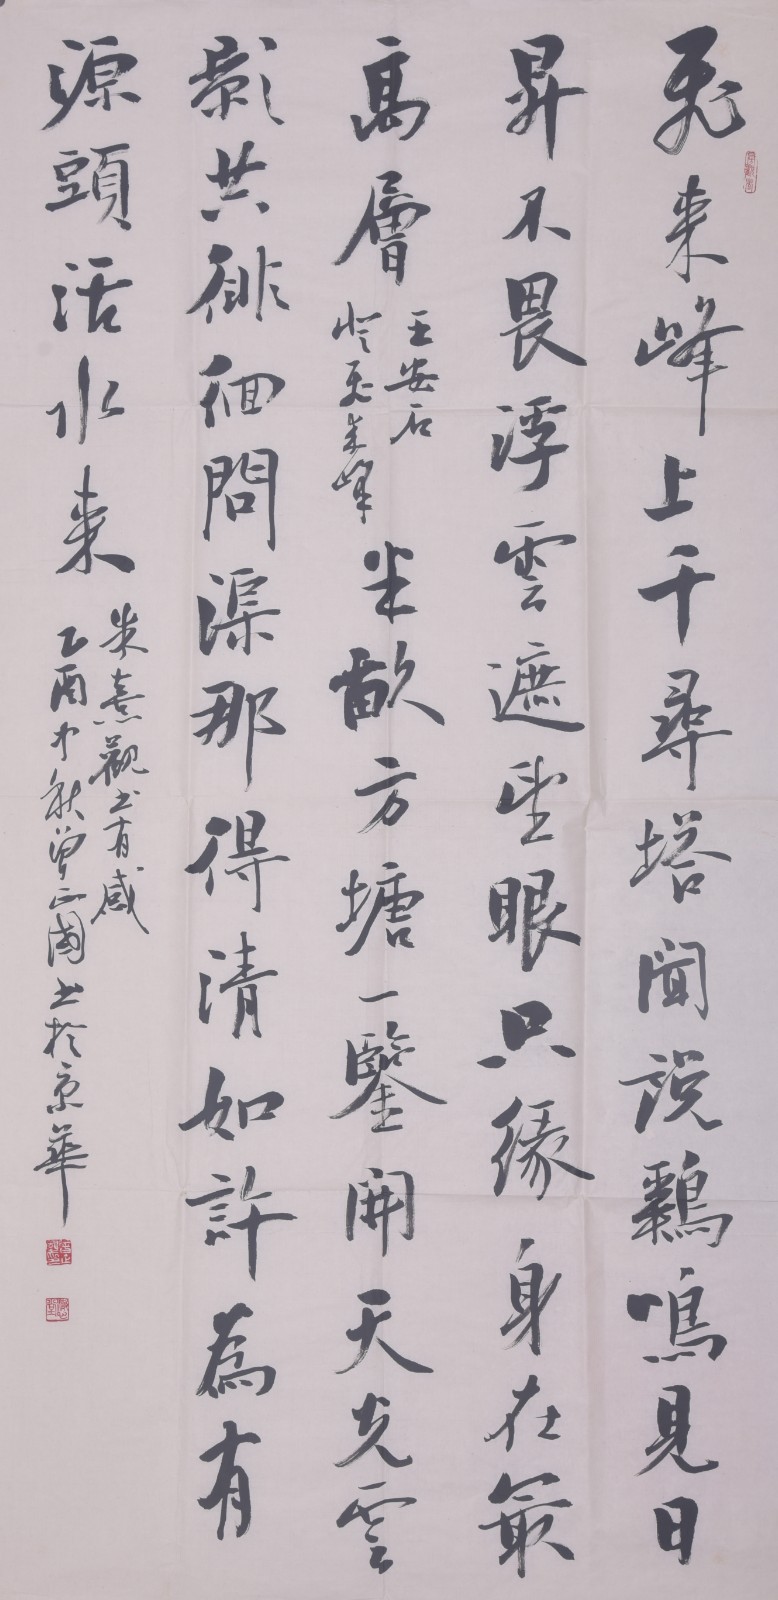 飛来峰上千尋塔聞說鷄鳴見日
昇不畏浮雲遮望眼只緣身在最
高層
王安石
登飛来峰
半畝方塘一鑒開天光雲
影共徘徊問渠那得清如許為有
源頭活水来
朱熹觀書有感
乙酉中秋曾正國書於京華